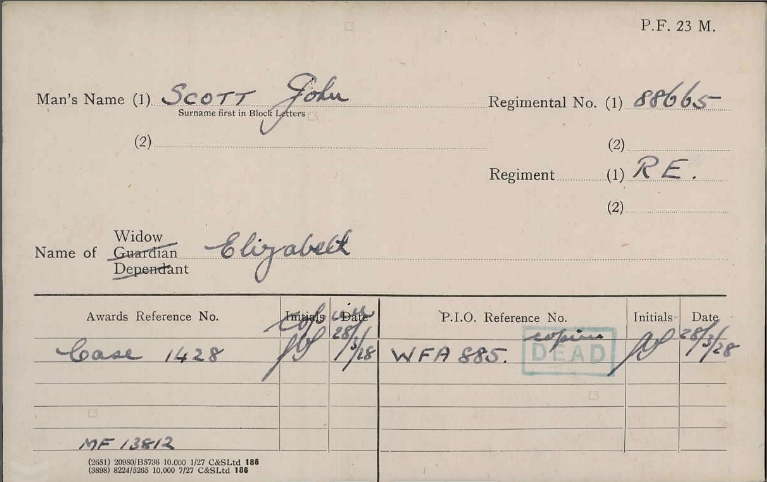 P.F. 23 M.
Man's Name (1) SCOTT John Regimental No. (1) 88665
Surname first in Block Letters
(2) (2)
Regiment (1) R E.
(2)
Widow
Name of Guardian Elizabeth
Dependant
Awards Reference No. Initials Date P.I.O. Reference No. Initials Date
copies
Case 1428 28/3/28 WFA 885. DEAD 28/3/28
MF 13812
(2651) 20980/B5736 10,000 1/27 C&SLtd 186
(3898) 8224/5265 10,000 7/27 C&SLtd 186